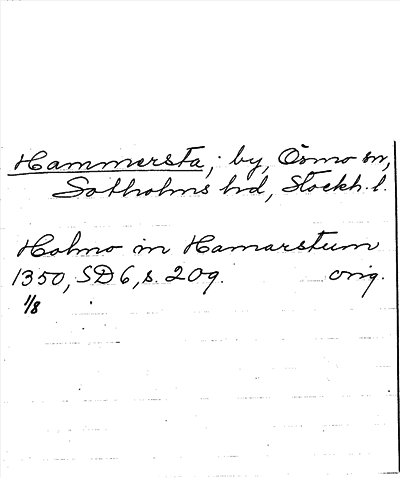 Hammersta, by, Ösmo sn,
Sotholms hd, Stockh. l.
Holmo in Hamarstum
1350, SD 6, s. 209. orig.
1/8